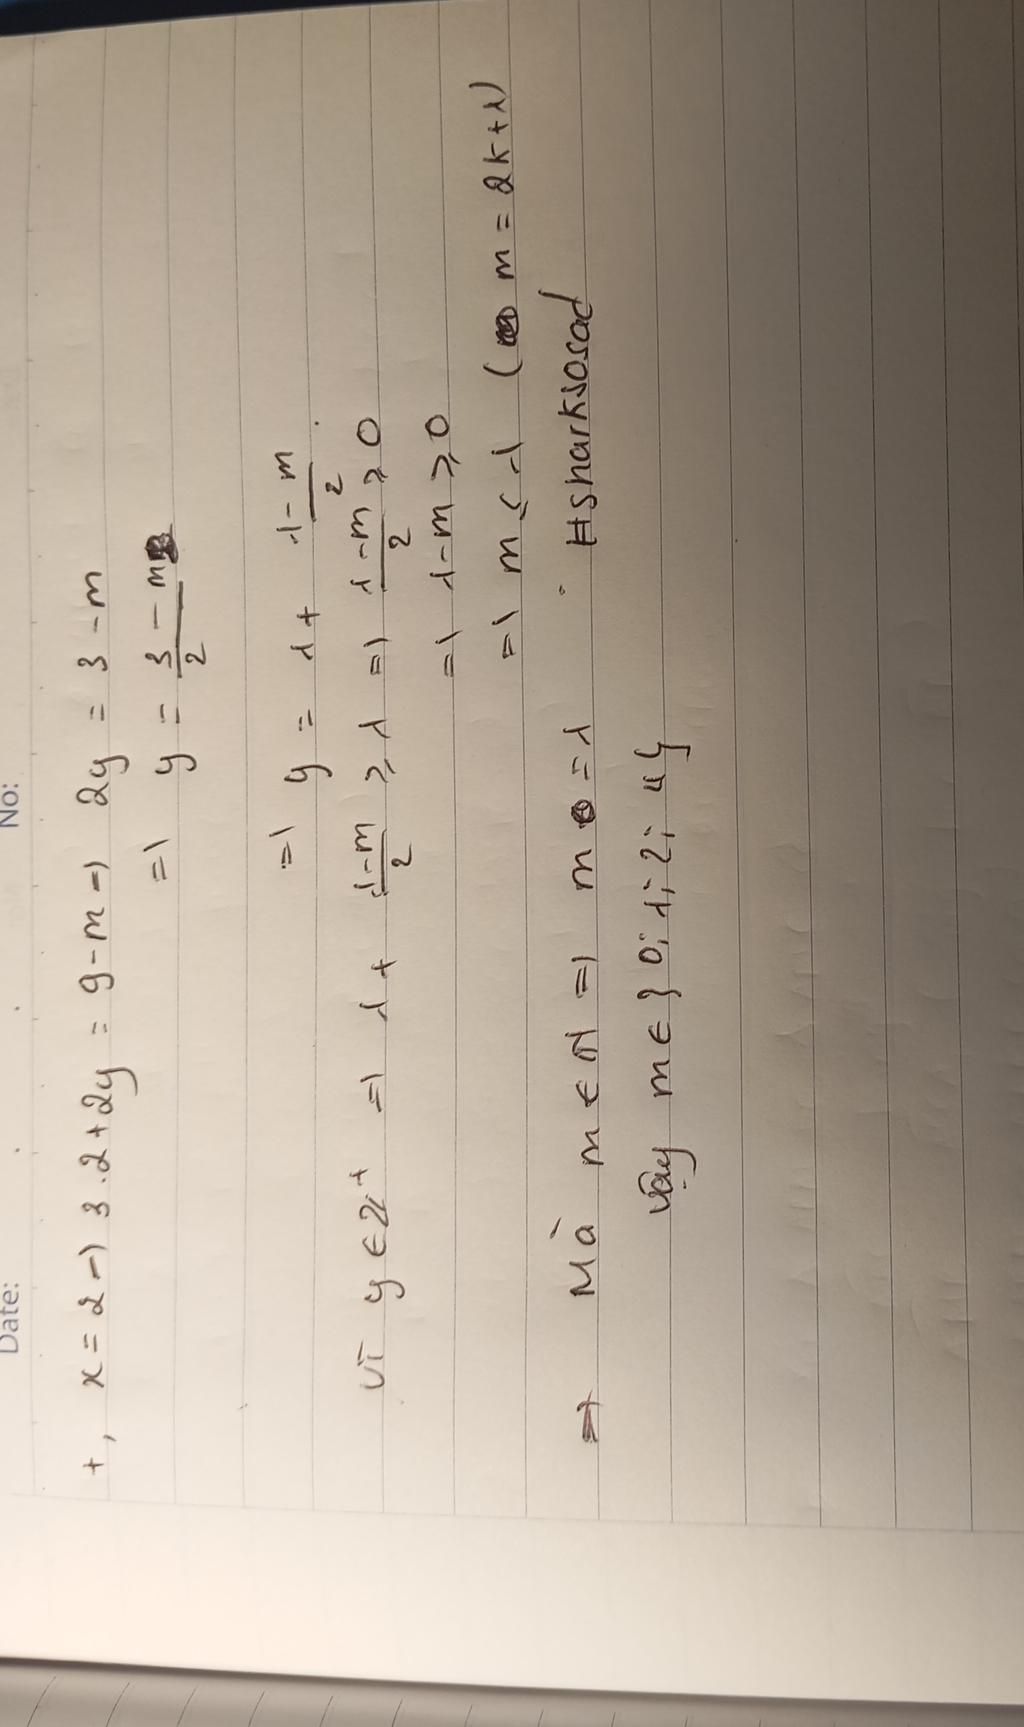 Date: No:
+, x = 2 => 3.2 + 2y = 9 - m => 2y = 3 - m
=> y = \frac{3 - m}{2}
=> y = 1 + \frac{1 - m}{2}
vì y ∈ Z⁺ => 1 + \frac{1 - m}{2} ⩾ 1 => \frac{1 - m}{2} ⩾ 0
=> 1 - m ⩾ 0
=> m ⩽ 1 (m = 2k + 1)
=> Mà m ∈ N => m = 1 Hsharksosad
vậy m ∈ {0; 1; 2; 4}